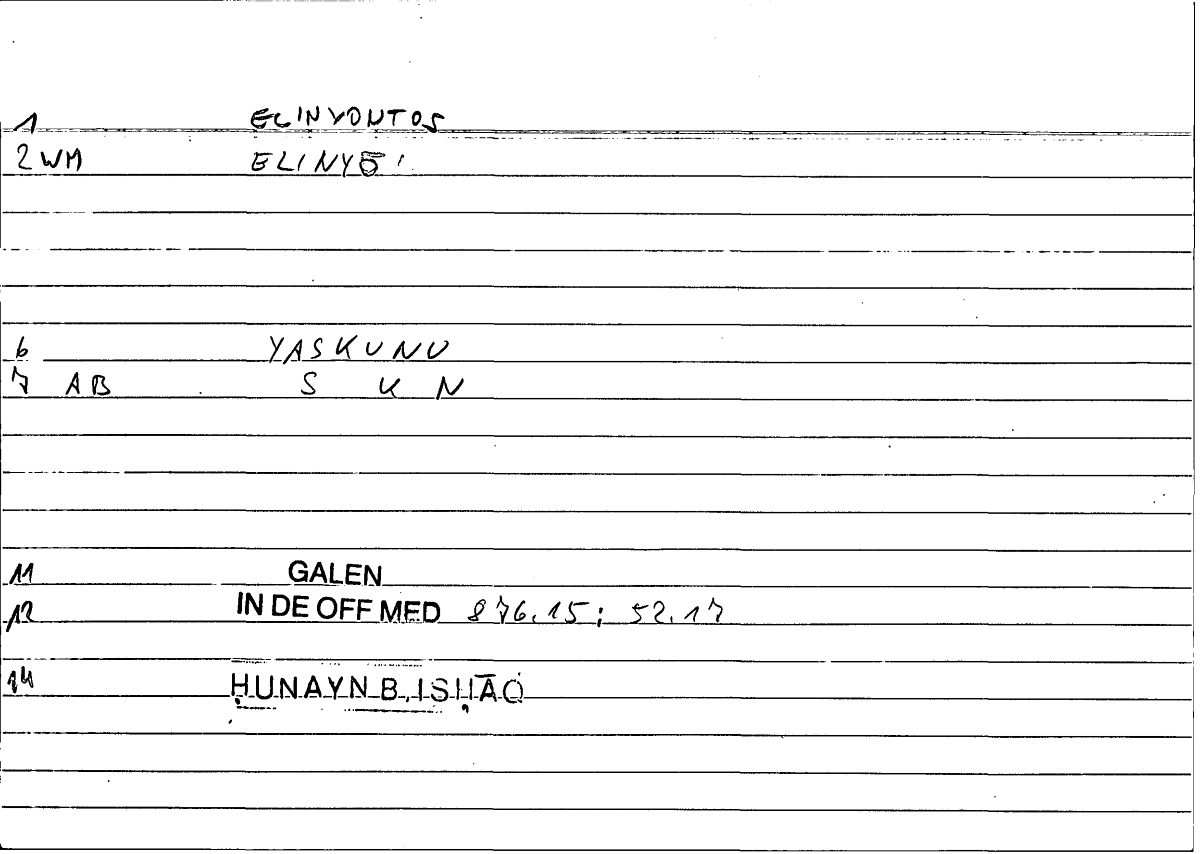 1 ELINYONTOS
2 WM ELINYŌ
6 YASKUNU
7 AB S K N
11 GALEN
12 IN DE OFF MED 876.15; 52.17
14 ḤUNAYN B. ISḤĀQ